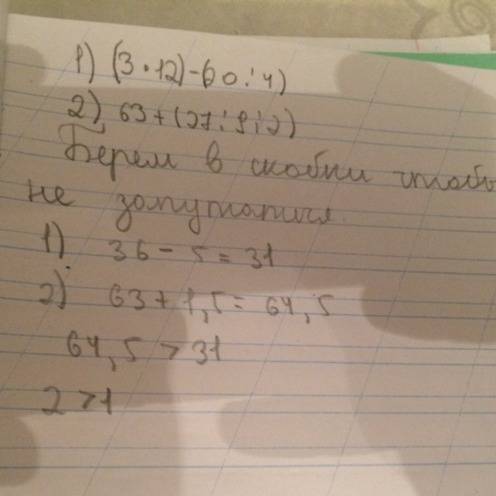 1) (3•12)-60:4)
2) 63+(27:9:2)
Берем в скобки чтобы
не запутаться.
1) 36-5=31
2) 63+1,5=64,5
64,5>31
2>1